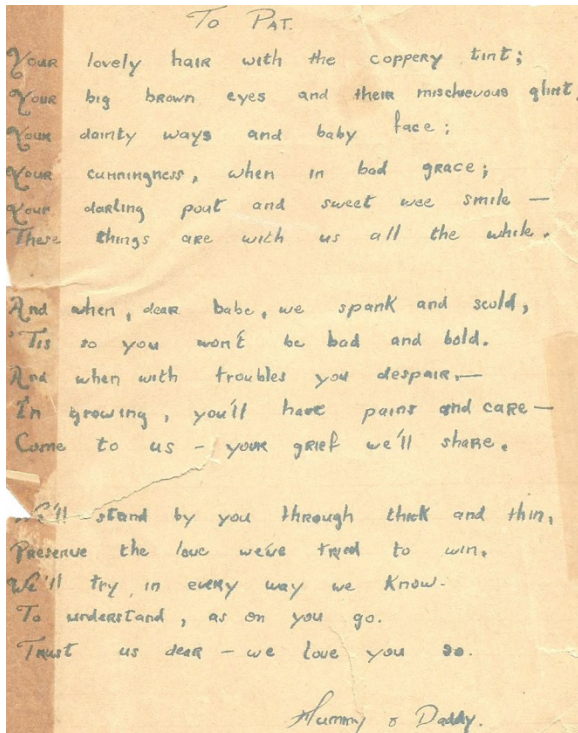 To Pat.
Your lovely hair with the coppery tint;
Your big brown eyes and their mischievous glint,
Your dainty ways and baby face;
Your cunningness, when in bad grace;
Your darling pout and sweet wee smile —
These things are with us all the while.
And when, dear babe, we spank and scold,
'Tis so you won't be bad and bold.
And when with troubles you despair,—
In growing, you'll have pains and care —
Come to us – your grief we'll share.
We'll stand by you through thick and thin,
Preserve the love we've tried to win.
We'll try, in every way we know.
To understand, as on you go.
Trust us dear – we love you so.
Mummy & Daddy.